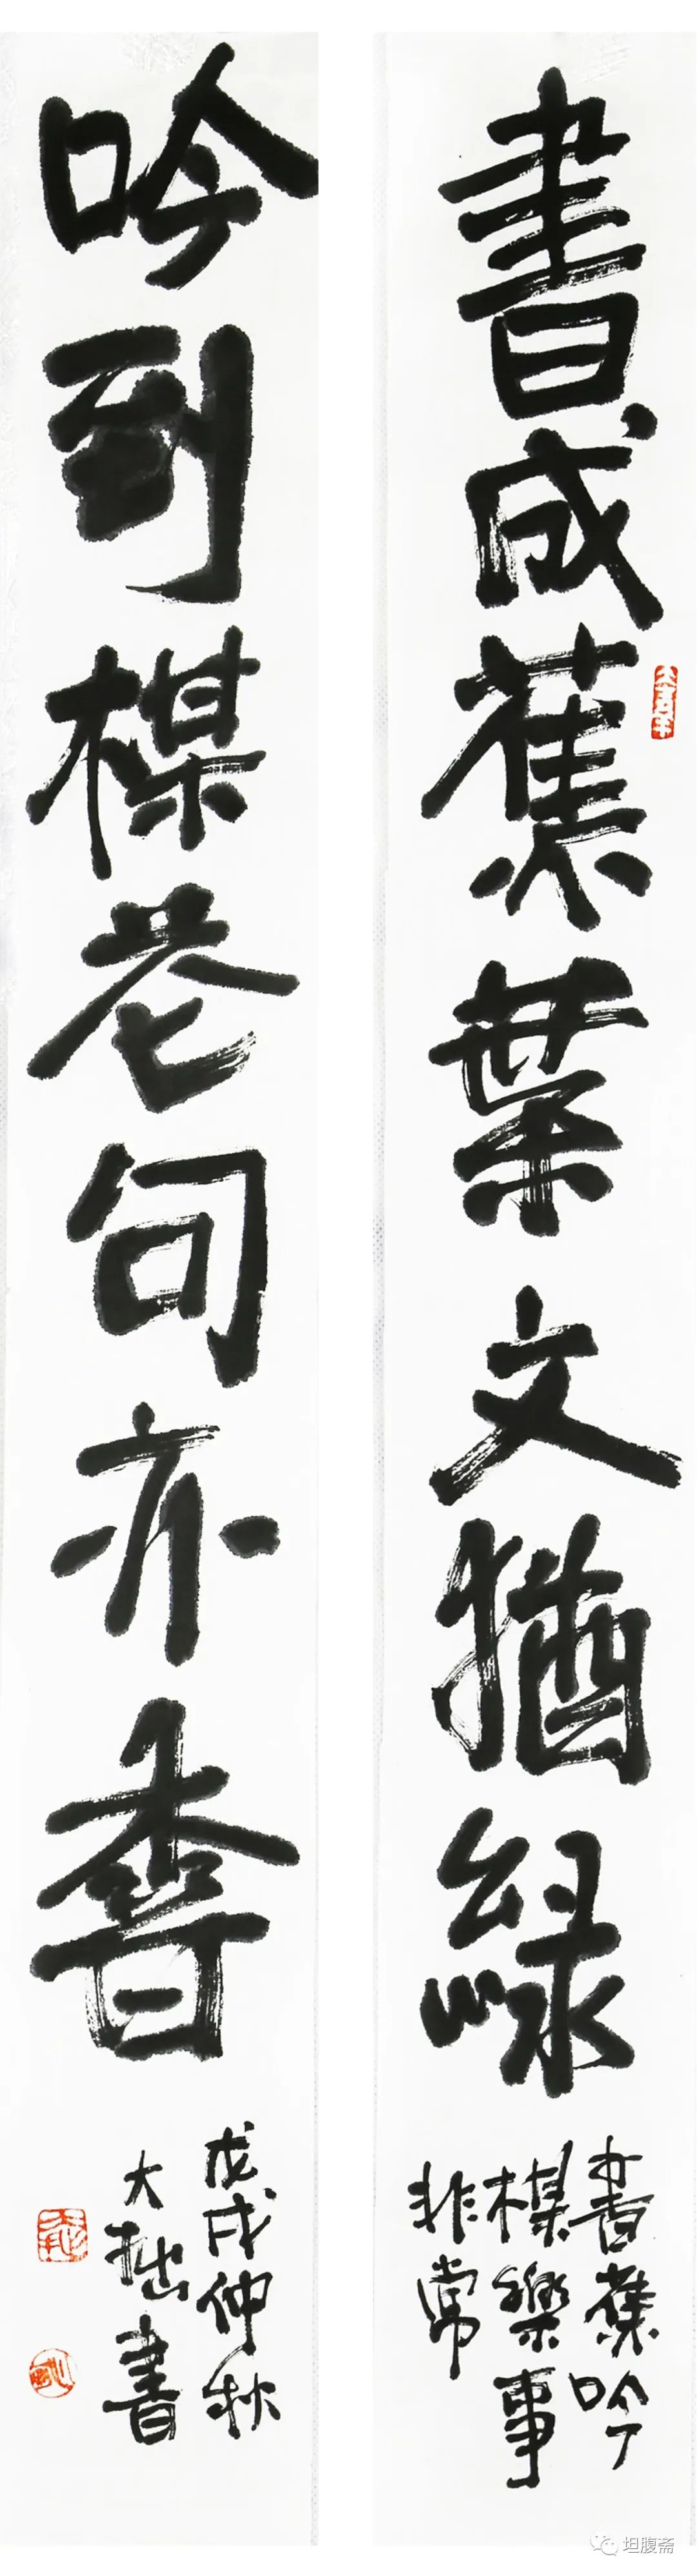 書成蕉葉文猶緑
書蕉吟
楳樂事
非常
吟到楳花句亦香
戊戌仲秋
大拙書
坦腹斋